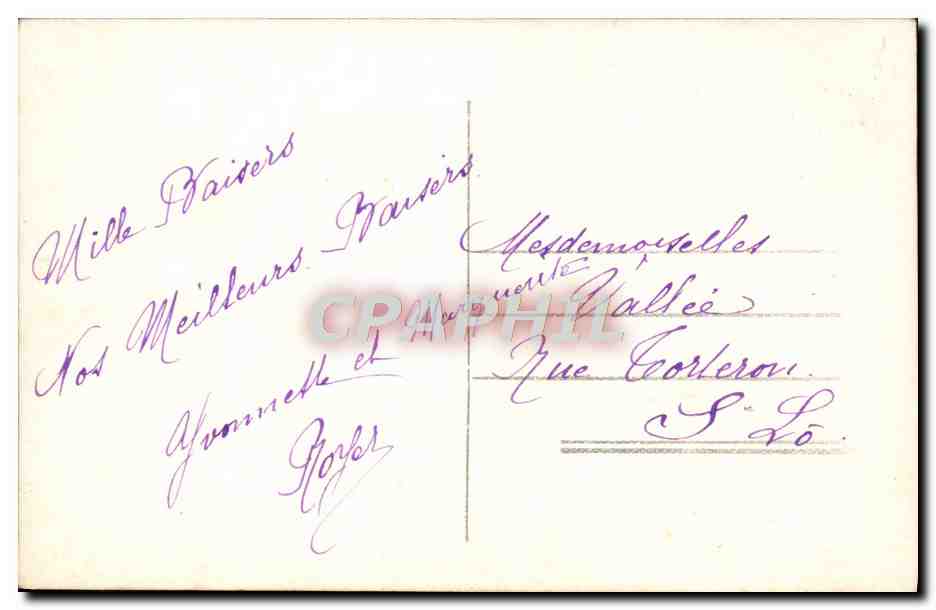 Mille Baisers
Nos Meilleurs Baisers
Yvonnette et Marguerite
Royer
Mesdemoiselles
Vallée
Rue Torteron
St Lô.
CPAPHIL